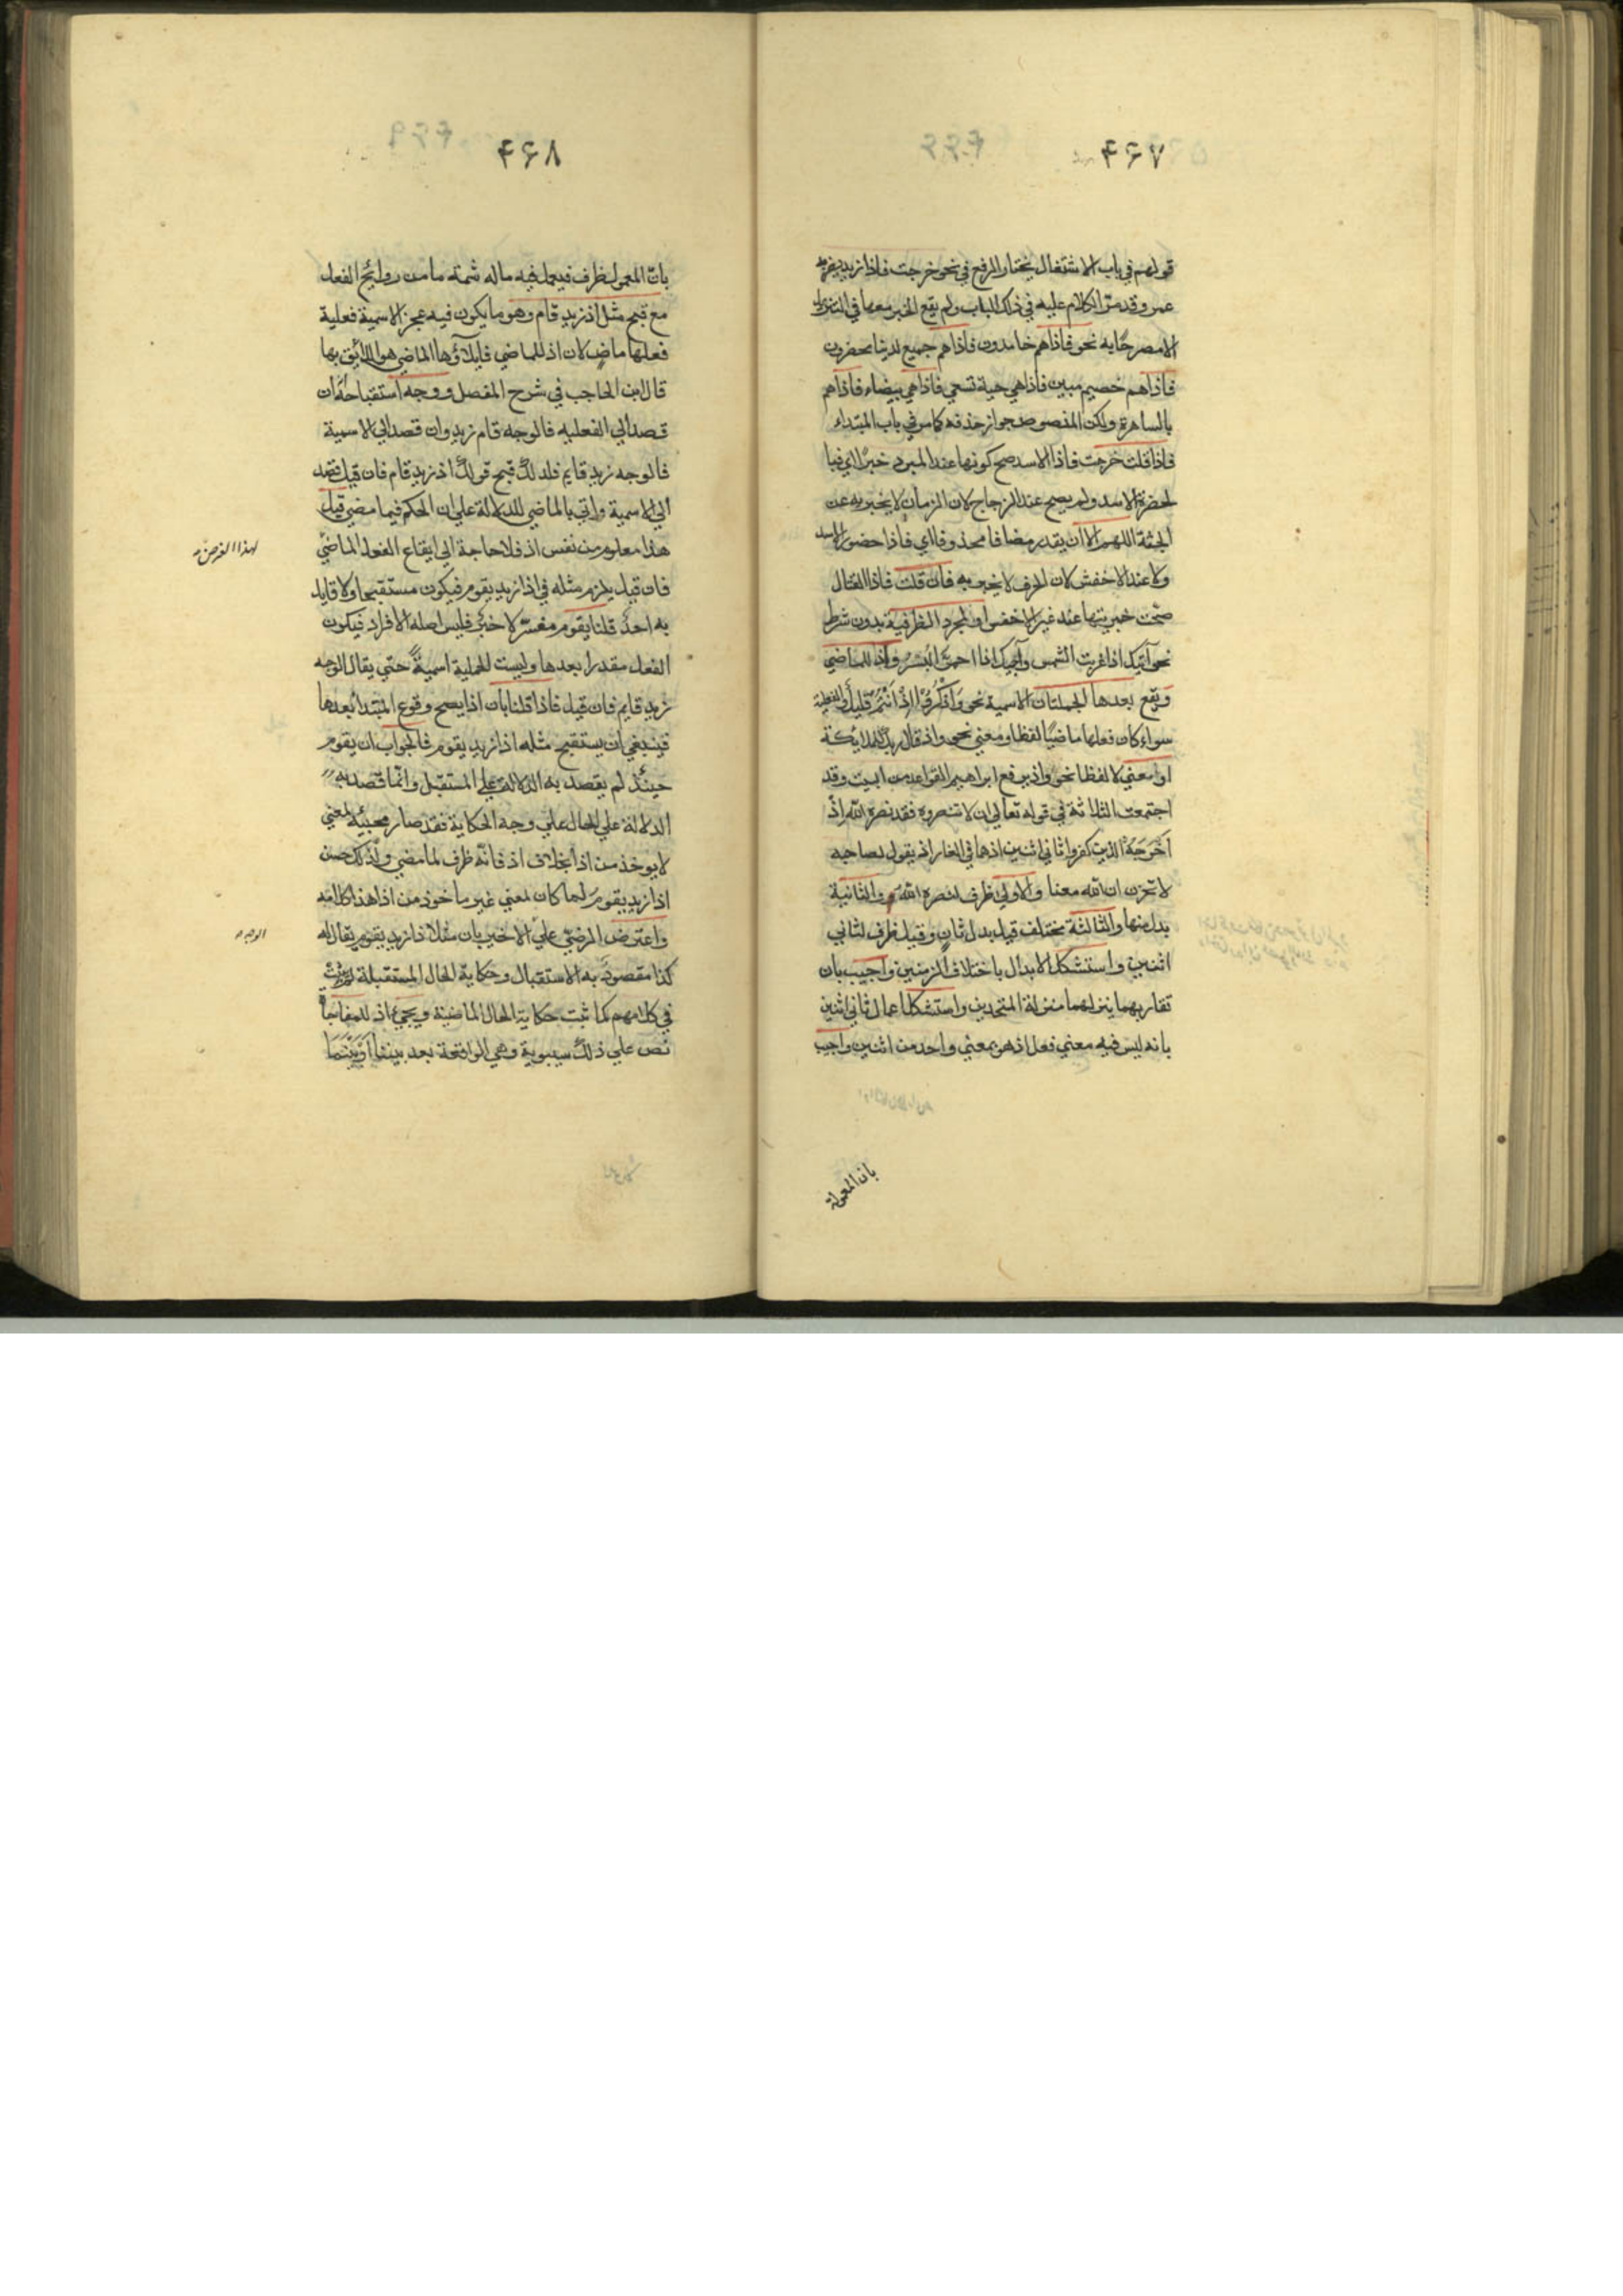 ۴۶۷
قولهم في باب الاشتغال يختار الرفع في نحو خرجت فاذا زيد يضربه
عمرو وقد مر الكلام عليه في ذلك الباب ولم يقع الخبر معها في التنزيل
الا مصرحا به نحو فاذا هم خامدون فاذا هم جميع لدينا محضرون
فاذا هم خصيم مبين فاذا هي حية تسعي فاذا هي بيضاء فاذا هم
بالساهرة ولكن المنصوص جواز حذفه كما مر في باب المبتداء
فاذا قلت خرجت فاذا الاسد صح كونها عند المبرد خبرًا اي فبا
لحضرة الاسد ولم يصح عند الزجاج لان الزمان لا يخبر به عن
الجثة اللهم الا ان يقدر مضافا محذوفا اي فاذا حضور الاسد
ولا عند الاخفش لان الحرف لا يخبر به فان قلت فاذا القتال
صحت خبريتها عند غير الاخفش او لمجرد الظرفية بدون شرط
نحو آتيك اذا غربت الشمس وآجيك اذا احمرَّ البُسْرُ واذ للماضي
ويقع بعدها الجملتان الاسمية نحو وَاذْكُرُوا اِذْ اَنْتُمْ قَلِيلٌ والفعلية
سواء كان فعلها ماضيًا لفظا ومعني نحو واذ قال ربك للملايكة
او معني لا لفظا نحو واذ يرفع ابراهيم القواعد من البيت وقد
اجتمعت الثلاثة في قوله تعالي ان لا تنصروه فقد نصره الله اذْ
اَخْرَجَهُ الذين كفروا ثاني اثنين اذ هما في الغار اذ يقول لصاحبه
لا تحزن ان الله معنا والاولي ظرف لنصره الله والثانية
بدل منها والثالثة مختلف قيل بدل ثانٍ وقيل ظرف لثاني
اثنين واستشكل الابدال باختلاف الزمنين واجيب بان
تقاربهما ينزلهما منزلة المتحدين واستشكل اعمال ثاني اثنين
بانه ليس فيه معني فعل اذ هو بمعني واحد من اثنين واجيب
بان المعمول
۴۶۸
بانّ المعمول ظرف فيعمل فيه ماله شمّة ما من روايح الفعل
مع قبح مثل اذ زيد قام وهو ما يكون فيه عجز الاسمية فعلية
فعلها ماضٍ لان اذ للماضي فايلاؤها الماضي هو اللائق بها
قال ابن الحاجب في شرح المفصل ووجه استقباحه ان
قصد الي الفعليه فالوجه قام زيد وان قصد الي الاسمية
فالوجه زيد قايم فلذلك قبح قولك اذ زيد قام فان قيل قصد
الي الاسمية واتي بالماضي للدلالة علي ان الحكم فيما مضي قيل
هذا معلوم من نفس اذ فلا حاجة الي ايقاع الفعل الماضي
لهذا الغرض
فان قيل يلزم مثله في اذا زيد يقوم فيكون مستقبحا ولا قايل
به احدٌ قلنا يقوم مفسّر لا خبرٌ فليس اصله الافراد فيكون
الفعل مقدرا بعدها وليست الجملية اسميةً حتي يقال الوجه
زيد قايم فان قيل فاذا قلنا بان اذا يصح وقوع المبتدا بعدها
فينبغي ان يستقبح مثله اذا زيد يقوم فالجواب ان يقوم
حينئذ لم يقصد به الدلالة علي المستقبل وانّما قصد به
الدلالة علي الحال علي وجه الحكاية فقد صار مجيئه لمعني
لا يوخذ من اذا بخلاف اذ فانّه ظرف لما مضي ولذلك حسن
اذا زيد يقوم لما كان لمعني غير ماخوذ من اذا هذا كلامه
واعترض الرضيّ علي الاخير بان مثل اذا زيد يقوم يقال له
الوجه
كذا مقصودٌ به الاستقبال وحكاية الحال المستقبلة لم يثبت
في كلامهم كما ثبت حكاية الحال الماضية ويجيء اذ للمفاجأ
نص علي ذلك سيبوية وهي الواقعة بعد بينا أو بَيْنَمَا